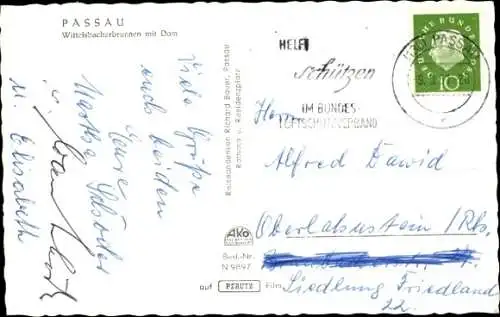 PASSAU
Wittelsbacherbrunnen mit Dom
Viele Grüße
euch beiden
Eure
Martha Schröder
u. Elisabeth
Reiseandenken Richard Bauer, Passau
Rathaus u. Residenzplatz
AKO
Best.-Nr.
N 9897
auf PERUTZ Film
HELFT
schützen
IM BUNDES-
LUFTSCHUTZVERBAND
PASSAU
DEUTSCHE BUNDESPOST
10
Herrn
Alfred Dawid
Oberlahnstein / Rh.
Siedlung Friedland
22.